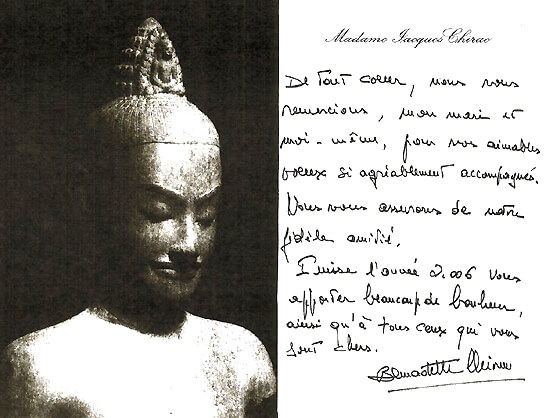 Madame Jacques Chirac
De tout coeur, nous vous
remercions, mon mari et
moi-même, pour vos aimables
voeux si agréablement accompagnés.
Nous vous assurons de notre
fidèle amitié.
Puisse l'année 2.006 vous
apporter beaucoup de bonheur,
ainsi qu'à tous ceux qui vous
sont chers.
Bernadette Chirac